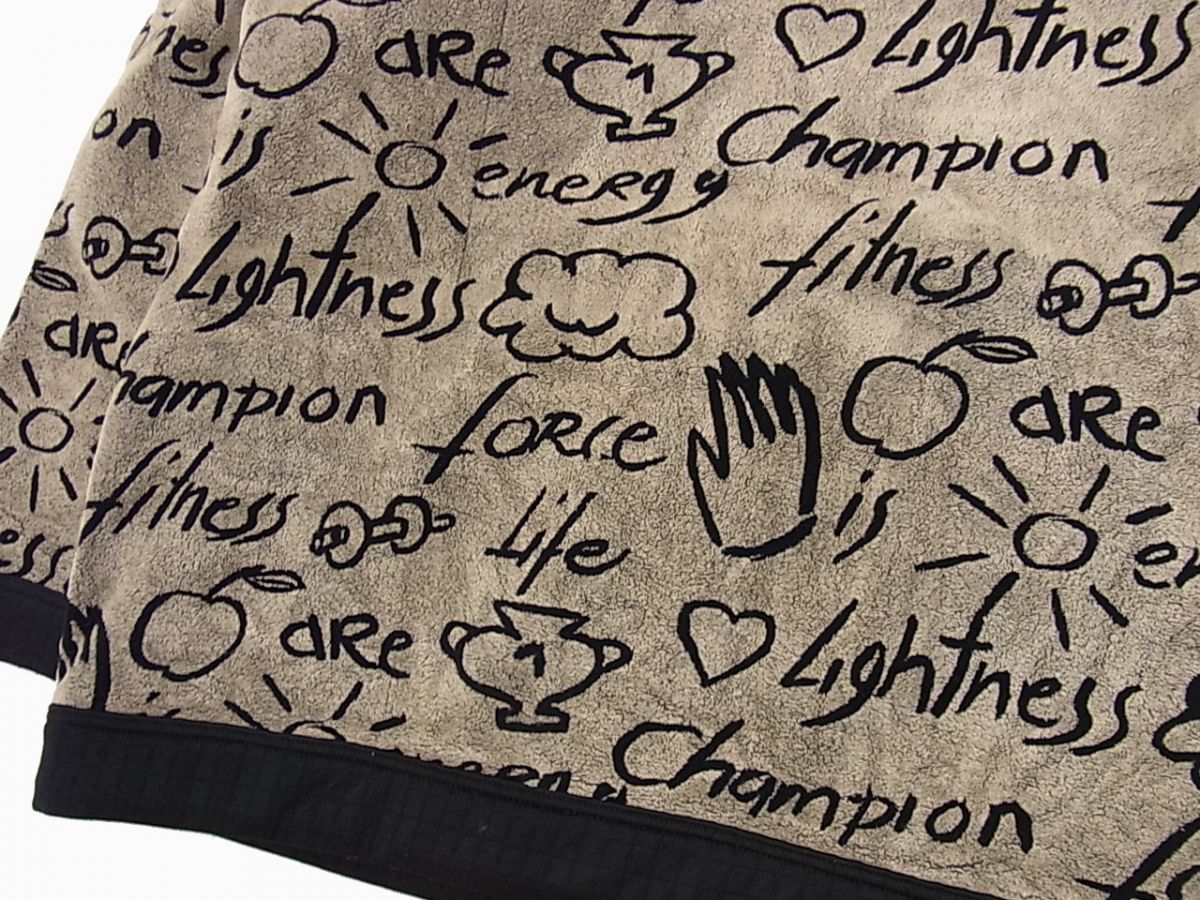 ness are Lightness
on is energy Champion
Lightness fitness
are
hampion force are
fitness life is en
ess are Lightness
energy Champion